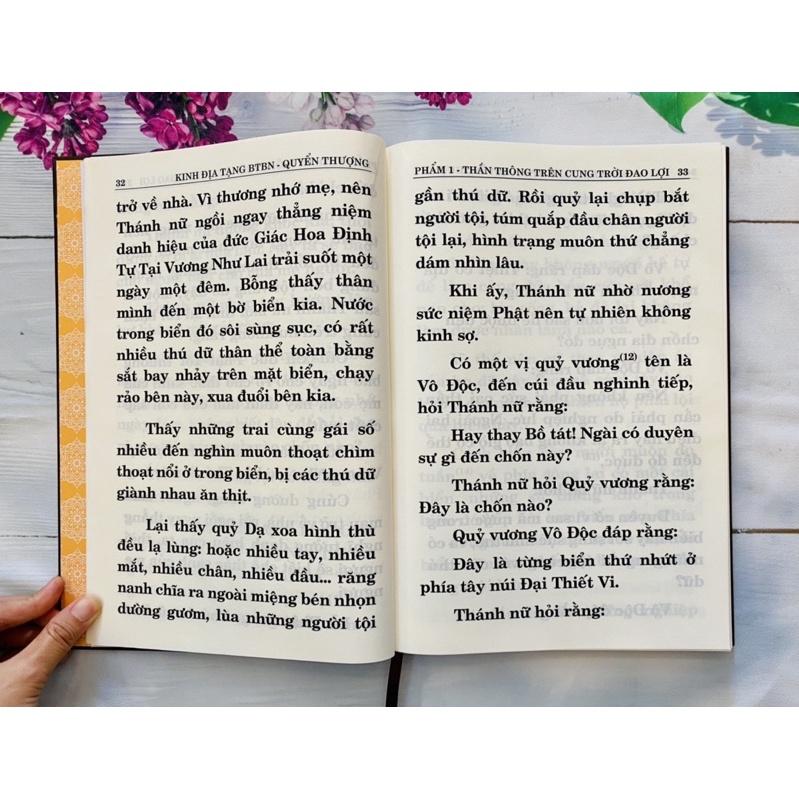 32 KINH ĐỊA TẠNG BTBN - QUYỂN THƯỢNG
trở về nhà. Vì thương nhớ mẹ, nên
Thánh nữ ngồi ngay thẳng niệm
danh hiệu của đức Giác Hoa Định
Tự Tại Vương Như Lai trải suốt một
ngày một đêm. Bỗng thấy thân
mình đến một bờ biển kia. Nước
trong biển đó sôi sùng sục, có rất
nhiều thú dữ thân thể toàn bằng
sắt bay nhảy trên mặt biển, chạy
rảo bên này, xua đuổi bên kia.
Thấy những trai cùng gái số
nhiều đến nghìn muôn thoạt chìm
thoạt nổi ở trong biển, bị các thú dữ
giành nhau ăn thịt.
Lại thấy quỷ Dạ xoa hình thù
đều lạ lùng: hoặc nhiều tay, nhiều
mắt, nhiều chân, nhiều đầu... răng
nanh chĩa ra ngoài miệng bén nhọn
dường gươm, lùa những người tội
PHẨM 1 - THẦN THÔNG TRÊN CUNG TRỜI ĐAO LỢI 33
gần thú dữ. Rồi quỷ lại chụp bắt
người tội, túm quắp đầu chân người
tội lại, hình trạng muôn thứ chẳng
dám nhìn lâu.
Khi ấy, Thánh nữ nhờ nương
sức niệm Phật nên tự nhiên không
kinh sợ.
Có một vị quỷ vương(12) tên là
Vô Độc, đến cúi đầu nghinh tiếp,
hỏi Thánh nữ rằng:
Hay thay Bồ tát! Ngài có duyên
sự gì đến chốn này?
Thánh nữ hỏi Quỷ vương rằng:
Đây là chốn nào?
Quỷ vương Vô Độc đáp rằng:
Đây là từng biển thứ nhứt ở
phía tây núi Đại Thiết Vi.
Thánh nữ hỏi rằng: